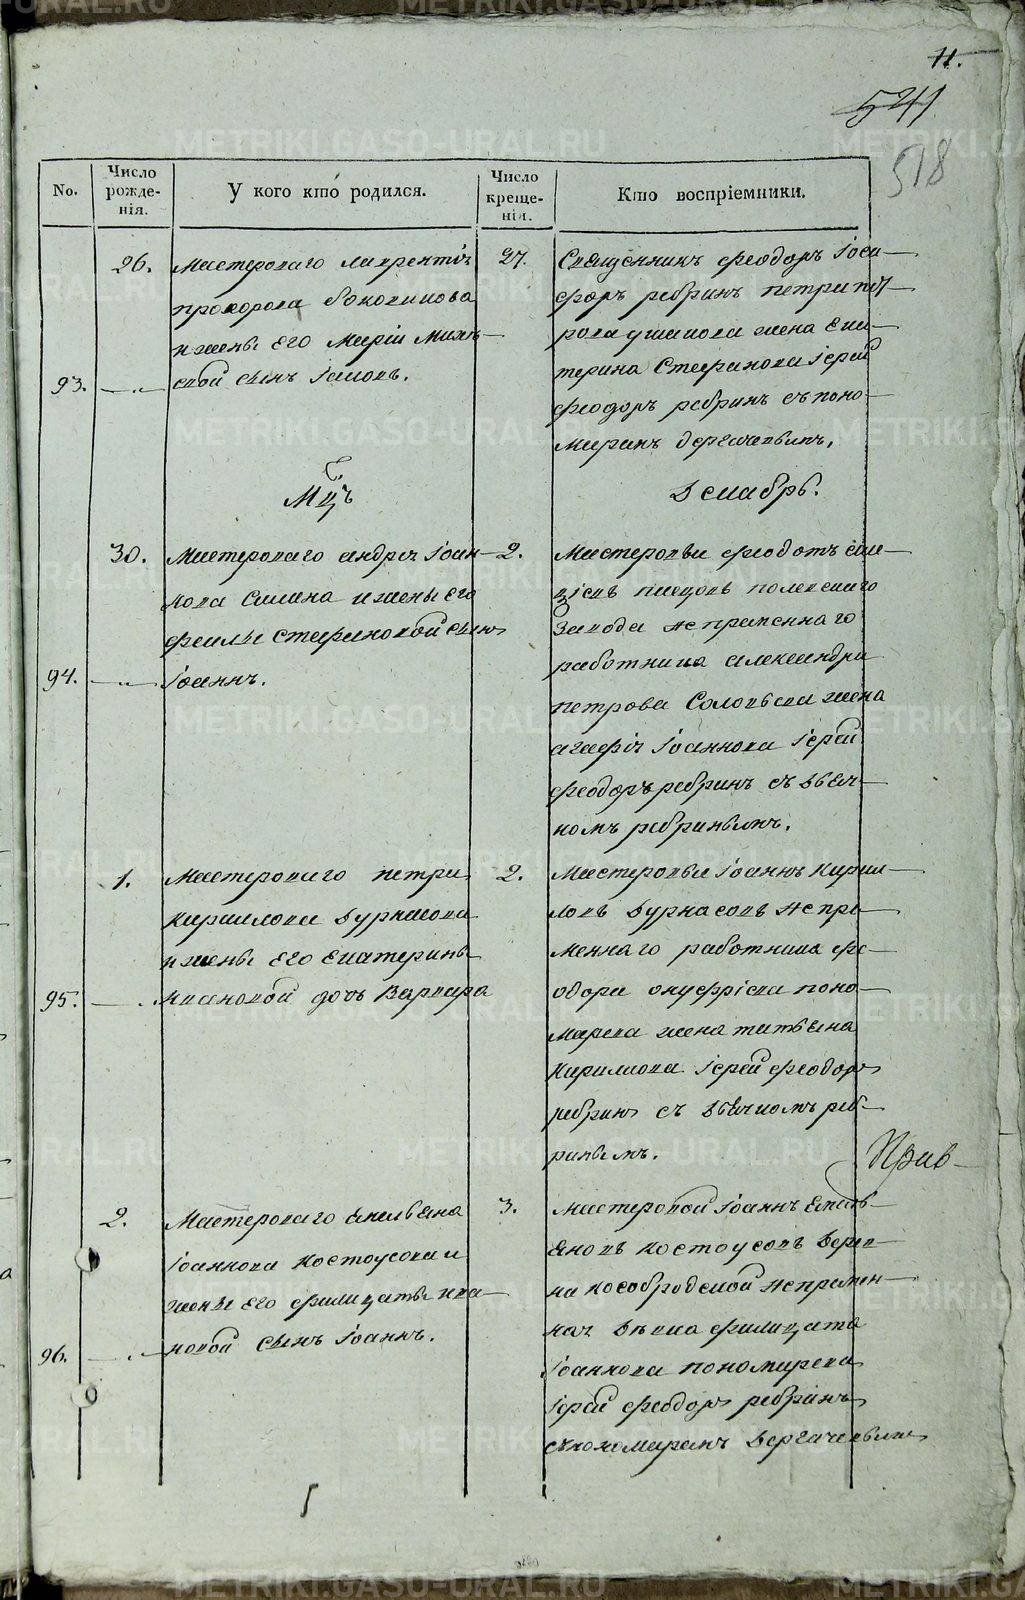 11.
541
518
No.
Число рожде-нія.
У кого кто родился.
Число креще-нія.
Кто воспріемники.
26.
Мастероваго лаврентія
прохорова соколикова
и жены Его Маріи Михѣ-
93. вой сынъ Іаковъ.
27.
Священникъ феодоръ Іоси-
форъ ребринъ петра пет-
рова ушакова жена Ека-
терина Стефанова Іерей
феодоръ ребринъ съ поно-
маремъ дергачевымъ.
Мцъ
Декабрь.
30.
Мастероваго андрея Іоан-
нова Силина и жены Его
феклы стефановой сынъ
94. Іоаннъ.
2.
Мастеровы феодотъ
пивцовъ полевскаго
Завода непременнаго
работника александра
петрова Соловьева жена
агафія Іоаннова Іерей
феодоръ ребринъ съ дьяч-
комъ ребринымъ.
1.
Мастероваго петра
Кирилова Бурнасова
и жены Его Екатерины
95. Ивановой дочь Варвара
2.
Мастеровы Іоаннъ Кирил-
ловъ Бурнасовъ непре-
меннаго работника фе-
одора онуфріева поно-
марева жена татьяна
Кирилова Іерей феодоръ
ребринъ съ дьячкомъ реб-
ринымъ.
2.
Мастероваго Емельяна
Іоаннова Костоусова и
жены Его филицаты ива-
96. новой сынъ Іоаннъ.
3.
мастеровой Іоаннъ Емель-
яновъ костоусовъ дерев-
ни кособродской непремен-
ная девка филицата
Іоаннова пономарева
Іерей феодоръ ребринъ
съ пономаремъ дергачевымъ